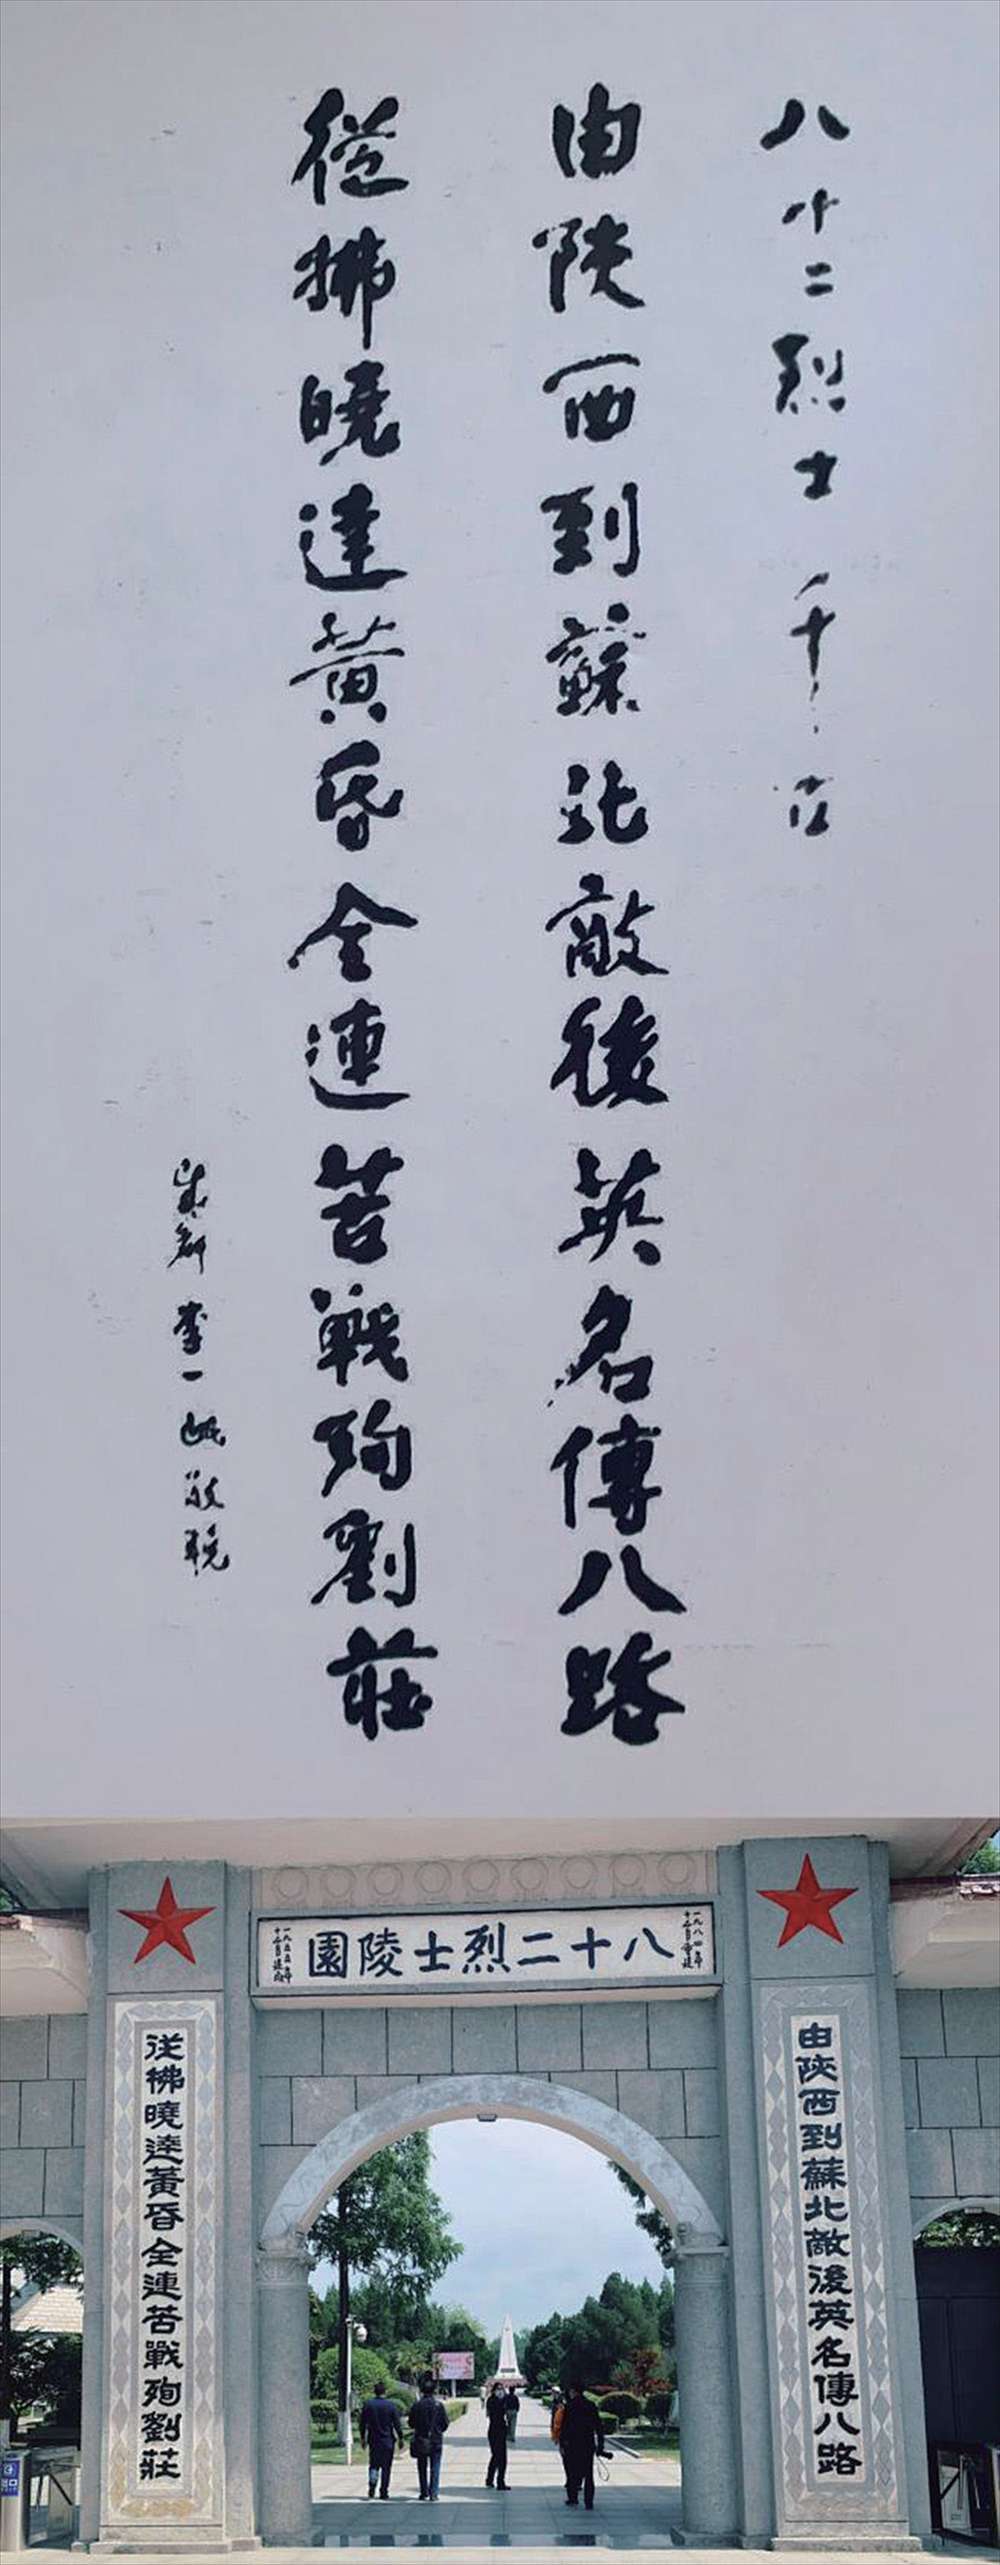 八十二烈士千古
由陝西到蘇北敵後英名傳八路
從拂曉達黃昏全連苦戰殉劉莊
成都 李一氓敬輓
八十二烈士陵園
一九八四年
一九五五年
由陝西到蘇北敵後英名傳八路
從拂曉達黃昏全連苦戰殉劉莊